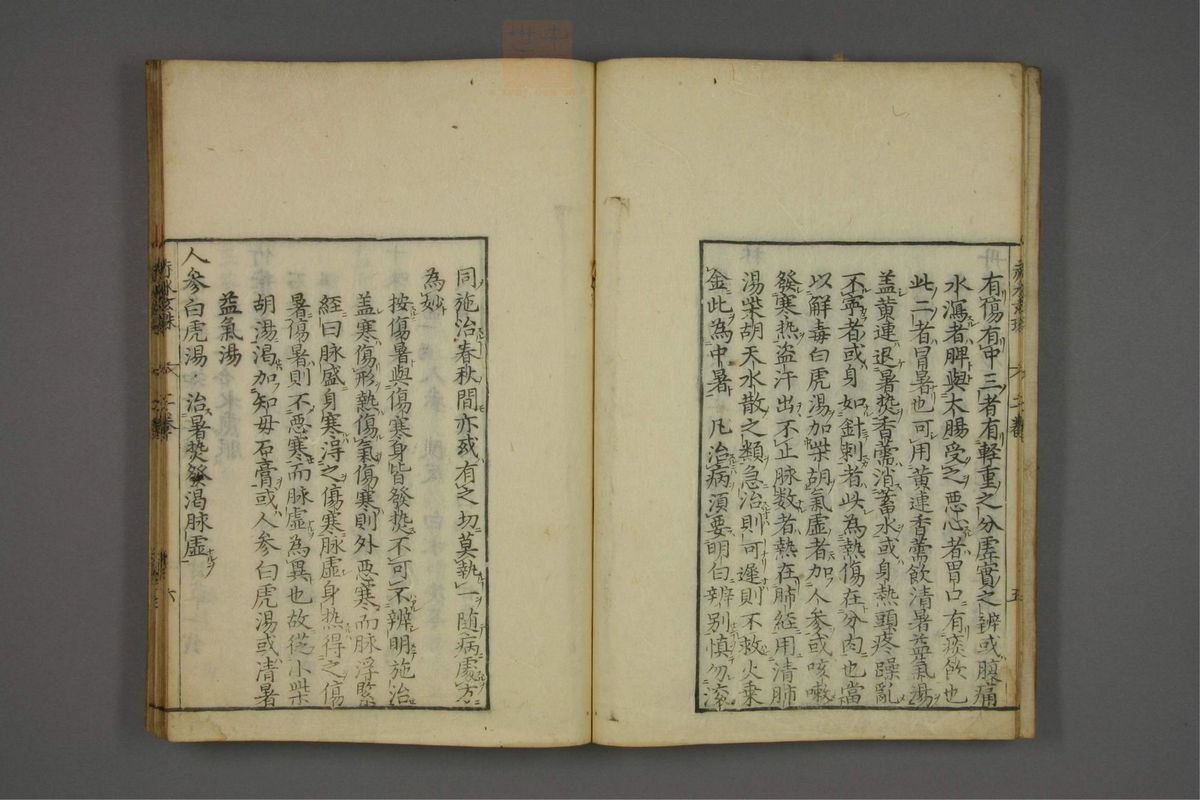 有傷有中三者有軽重之分虚實之辨或腹痛
水瀉者脾與大腸受之悪心者胃口有痰飲也
此二者冒暑也可用黄連香薷飲清暑益氣湯
盖黄連退暑熱香薷消蓄水或身熱頭疼躁亂
不寧者或身如針刺者此為熱傷在分肉也當
以解毒白虎湯加柴胡氣虚者加人参或咳嗽
發寒热盗汗出不止脉数者熱在肺経用清肺
湯柴胡天水散之類急治則可遲則不救火乗
金此為中暑 凡治病須要明白辨别慎勿滚
同施治春秋間亦或有之切莫執一随病處方
為妙
按傷暑與傷寒身皆發热不可不辨明施治
盖寒傷形熱傷氣傷寒則外悪寒而脉浮緊
經曰脉盛身寒得之傷寒脉虚身热得之傷
暑傷暑則不悪寒而脉虚為異也故從小柴
胡湯渇加知毋石膏或人参白虎湯或清暑
益氣湯
人参白虎湯 治暑熱發渇脉虚